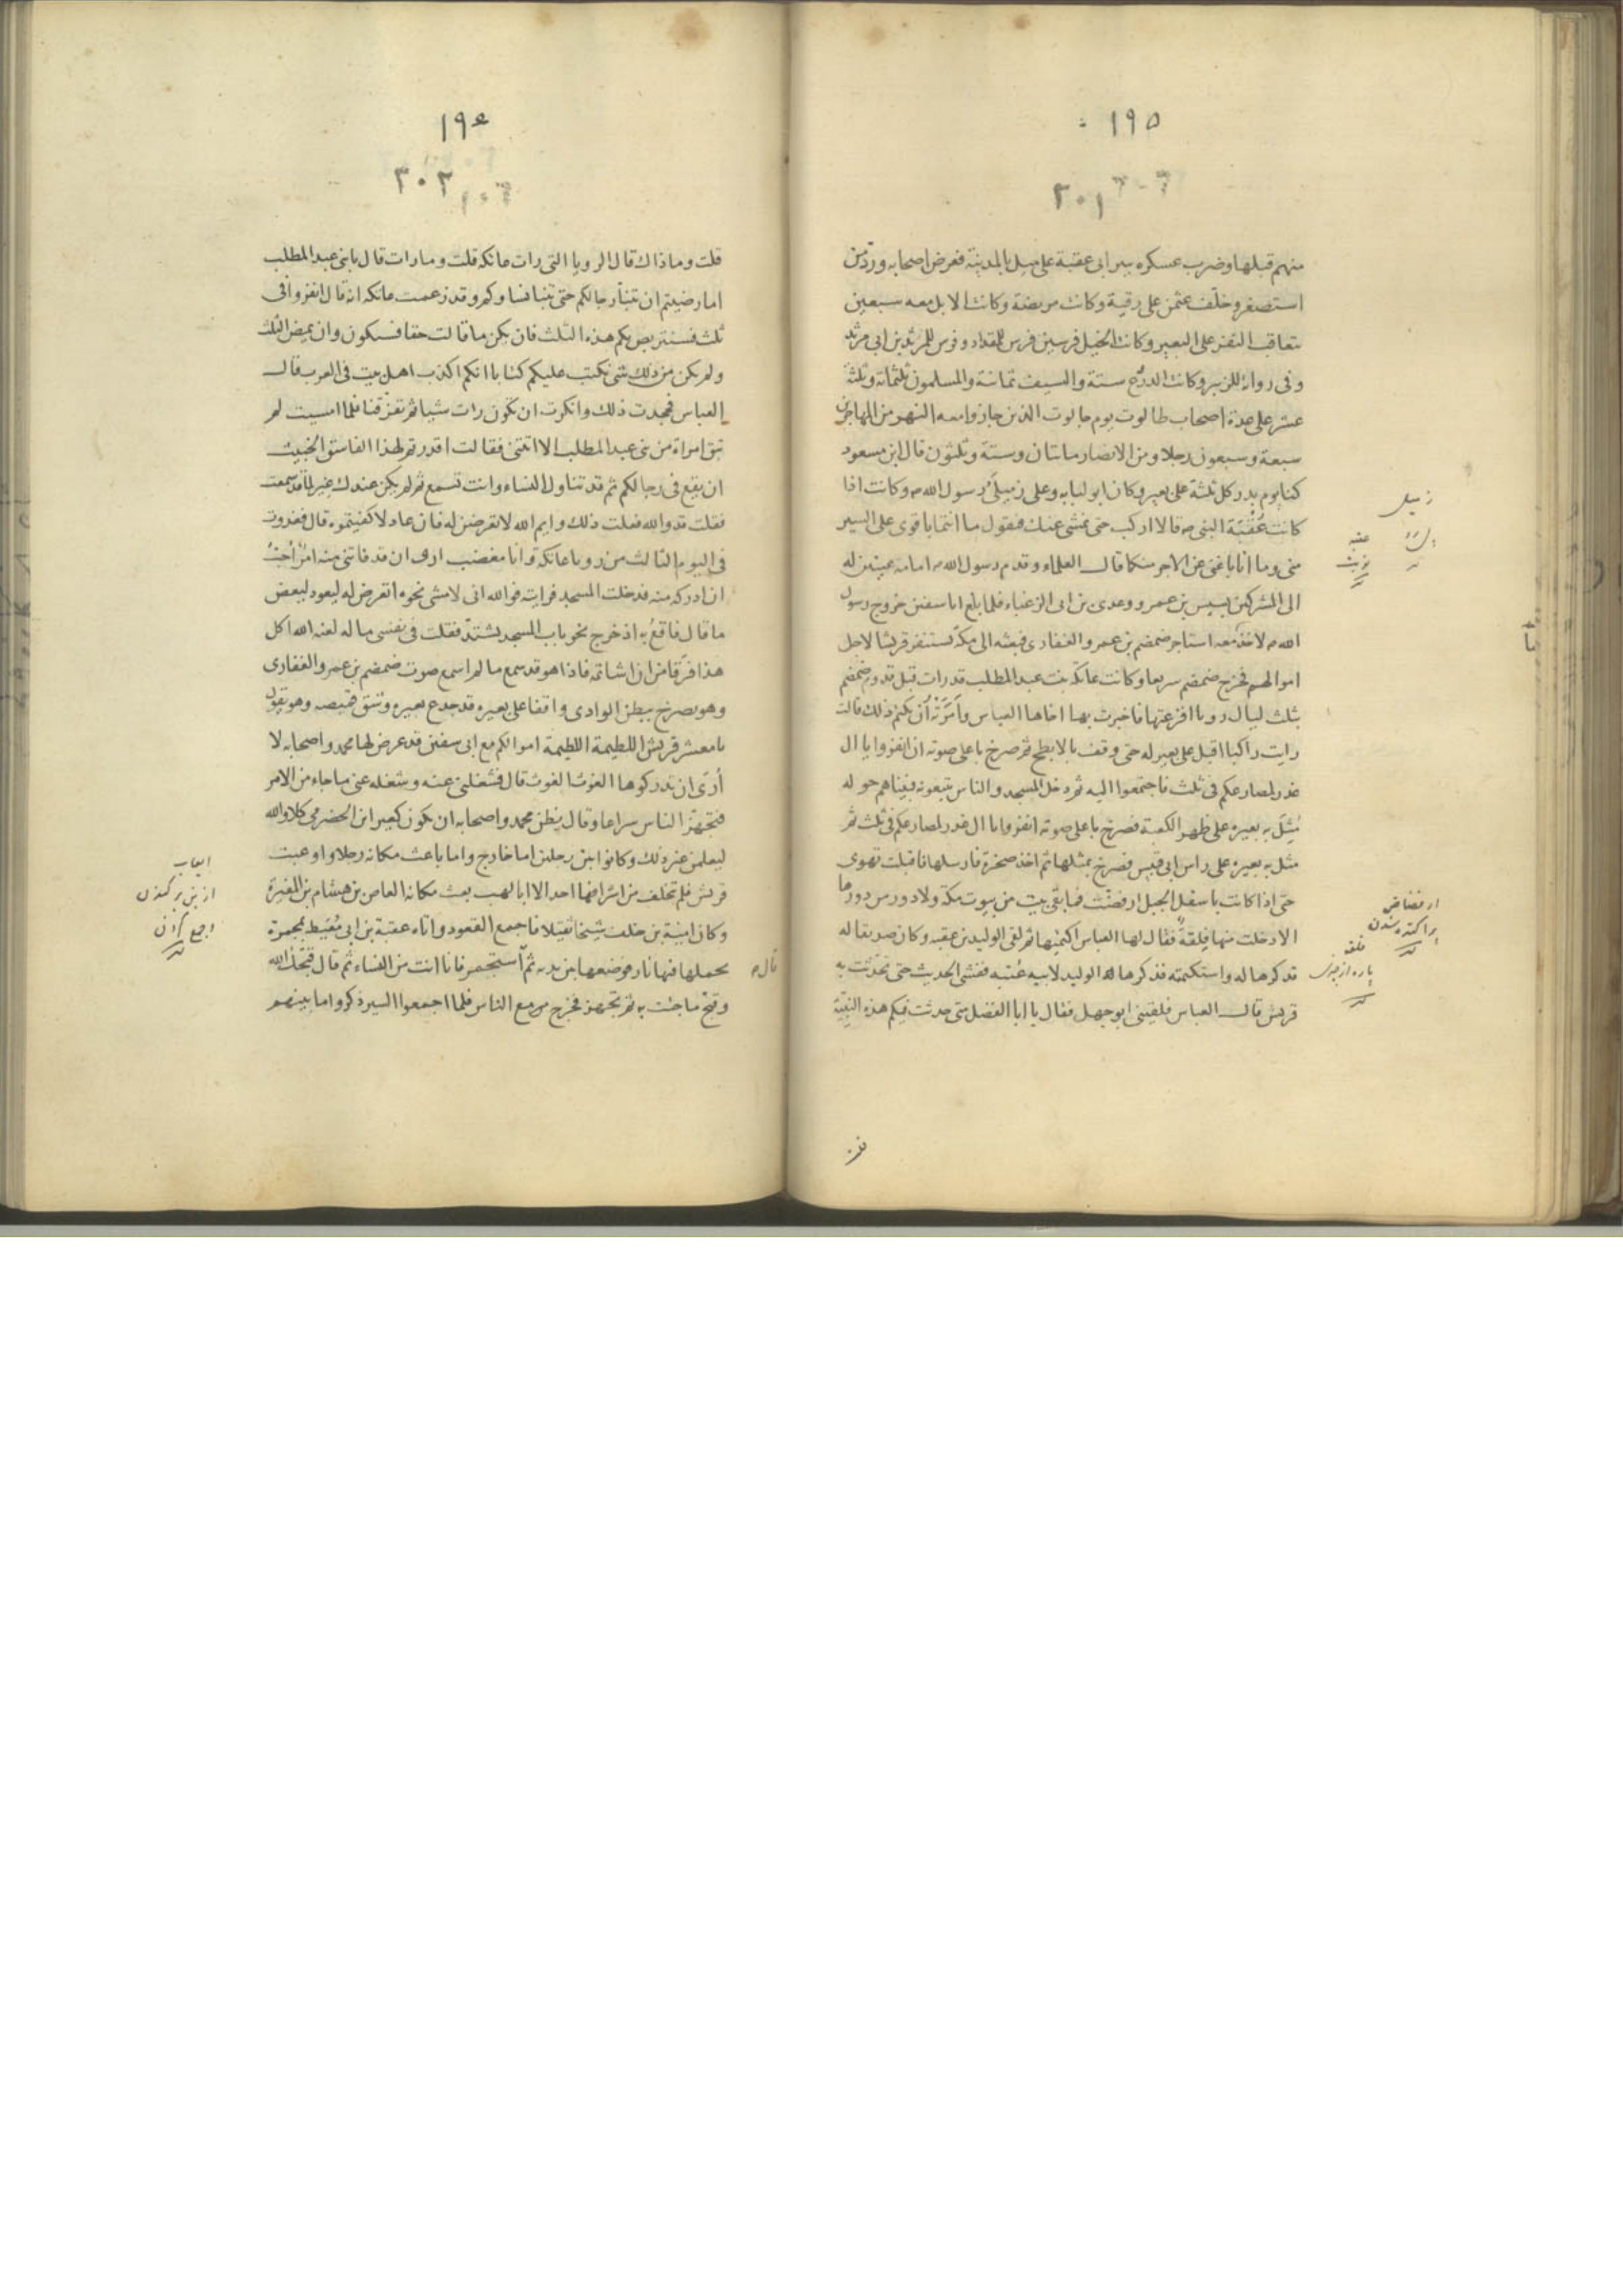 ١٩٥
٣٠١
منهم قبلها وضرب عسكره ببير ابى عقبة على ميل بالمدينة فعرض اصحابه وردّ من
استصغر وخلّف عثمن على رقية وكانت مريضة وكانت الابل معه سبعين
يتعاقب النفر على البعير وكانت الخيل فرسين فرس للمقداد وفرس للمرثد بن ابى مرثد
وفى رواية للزبير وكانت الدرع ستة والسيف ثمانية والمسلمون ثلثمائة وثلثة
عشر على عدة اصحاب طالوت يوم جالوت الذين جازوا معه النهر من المهاجرين
سبعة وسبعون رجلا ومن الانصار مائتان وستة وثلثون قال ابن مسعود
كنا يوم بدر كل ثلثة على بعير وكان ابو لبابه وعلى زميلَىْ رسول الله ص وكانت اذا
كانت عُقْبَة النبى ص قالا اركب حتى نمشى عنك فيقول ما انتما باقوى على السير
منى وما انا باغنى عن الاجر منكما قال العلماء وقدم رسول الله ص امامه عينين له
الى المشركين بسبس بن عمرو وعدى بن ابى الزغباء فلما بلغ ابا سفين خروج رسول
الله ص لاخذ معه استاجر ضمضم بن عمرو الغفارى فبعثه الى مكة يستنفر قريشا لاجل
اموالهم فخرج ضمضم سريعا وكانت عاتكة بنت عبد المطلب قد رات قبل قدوم ضمضم
بثلث ليال رويا افزعتها فاخبرت بها اخاها العباس وأمَرَتْه أن يكتم ذلك قالت
رايت راكبا اقبل على بعير له حتى وقف بالابطح ثم صرخ باعلى صوته ان انفروا يا ال
غدر لمصارعكم فى ثلث فاجتمعوا اليه ثم دخل المسجد والناس يتبعونه فبيناهم حوله
مُثِلَ به بعيره على ظهر الكعبة فصرخ باعلى صوته انفروا يا ال غدر لمصارعكم فى ثلث ثم
مثل به بعيره على راس ابى قبيس فصرخ بمثلها ثم اخذ صخرة فارسلها فاقبلت تهوى
حتى اذا كانت باسفل الجبل ارفضّت فما بقى بيت من بيوت مكة ولا دور من دورها
الا دخلت منها فِلقةٌ فقال لها العباس اكتميها ثم لقى الوليد بن عقبه وكان صديقا له
فذكرها له واستكتمه فذكرها له الوليد لابيه عُتبه ففشى الحديث حتى تحدّثت به
قريش قال العباس فلقينى ابو جهل فقال يا ابا الفضل متى حدثت فيكم هذه النبيّة
زميل
عقبه
نوبت
ارفضاض
پراكنده شدن
فلقه
پاره از چيزى
١٩٤
٣٠٢
قلت وما ذاك قال الرويا التى رات عاتكه قلت وما رات قال يا بنى عبد المطلب
اما رضيتم ان تنبأ رجالكم حتى تنبا نساوكم وقد زعمت عاتكه انه قال انفروا فى
ثلث فسنتربص بكم هذه الثلث فان يكن ما قالت حقا فسيكون وان يمض الثلث
ولم يكن من ذلك شى نكتب عليكم كتابا انكم اكذب اهل بيت فى العرب قال
العباس فجحدت ذلك وانكرت ان تكون رات شيا ثم تفرّقنا فلما امسيت لم
تبق امراة من بنى عبد المطلب الا اتتنى فقالت اقررتم لهذا الفاسق الخبيث
ان يقع فى رجالكم ثم قد تناول النساء وانت تسمع ثم لم يكن عندك غير لما قد سمعت
فقلت قد والله فعلت ذلك وايم الله لاتعرضن له فان عاد لاكفيتموه قال فغدوت
فى اليوم الثالث من رويا عاتكه وانا مغضب ارى ان قد فاتنى منه امرٌ أُحِبُّ
ان ادركه منه فدخلت المسجد فرايته فوالله انى لامشى نحوه اتعرض له ليعود لبعض
ما قال فاقعُ به اذ خرج نحو باب المسجد يشتدّ فقلت فى نفسى ما له لعنه الله اكل
هذا فَرَقا من ان اشاتمه فاذا هو قد سمع ما لم اسمع صوت ضمضم بن عمرو الغفارى
وهو يصرخ ببطن الوادى واقفا على بعيره قد جدع بعيره وشق قميصه وهو يقول
يا معشر قريش اللطيمة اللطيمة اموالكم مع ابى سفين قد عرض لها محمد واصحابه لا
أرَى ان تدركوها الغوث الغوث قال فشغلنى عنه وشغله عنى ما جاء من الامر
فتجهّز الناس سراعا وقال يظن محمد واصحابه ان يكون كعير ابن الحضرمى كلا والله
ليعلمن غير ذلك وكانوا بين رجلين اما خارج واما باعث مكانه رجلا واوعبت
قريش فلم تخلف من اشرافها احد الا ابا لهب بعث مكانه العاص بن هشام بن المغيرة
وكان امية بن خلف شيخا ثقيلا فاجمع القعود واتاه عقبة بن ابى مُعَيط بمجمرة
يحملها فيها نار فوضعها بين يديه ثم استجمر فانما انت من النساء ثم قال قبّحك الله
وقبّح ما جئت به ثم تجهز فخرج مع الناس فلما اجمعوا السير ذكروا ما بينهم
ايعاب
از بن بركندن
قال